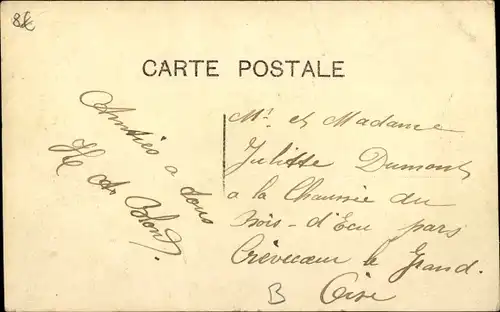 CARTE POSTALE
Amitiés a tous
Mr et Madame
Julitte Dumont
a la Chaussée du
Bois-d'Ecu par
Crèvecœur le Grand.
Oise
B